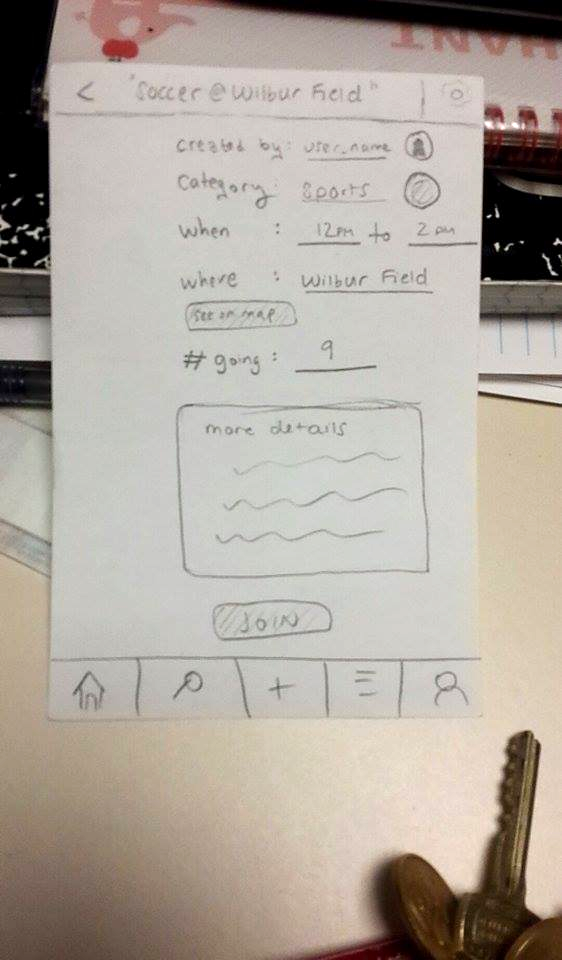 HANT
< "Soccer @ Wilbur Field"
created by: user_name
Category: Sports
when : 12PM to 2 PM
where : Wilbur Field
see on map
# going: 9
more details
JOIN
+